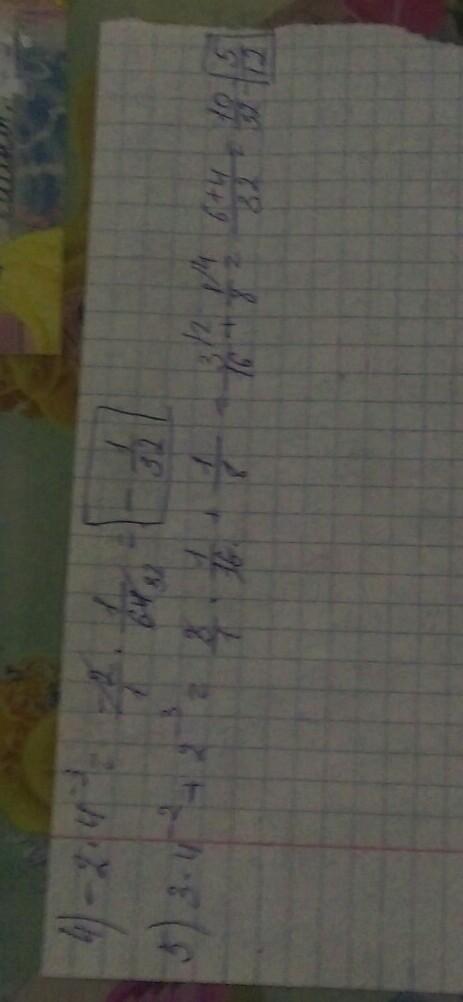 4) -2·4⁻³ = -2/1 · 1/64 32 = [- 1/32]
5) 3·4⁻² + 2⁻³ = 3/1 · 1/16 + 1/8 = 3\2/16 + 1\4/8 = 6+4/32 = 10/32 = 5/12